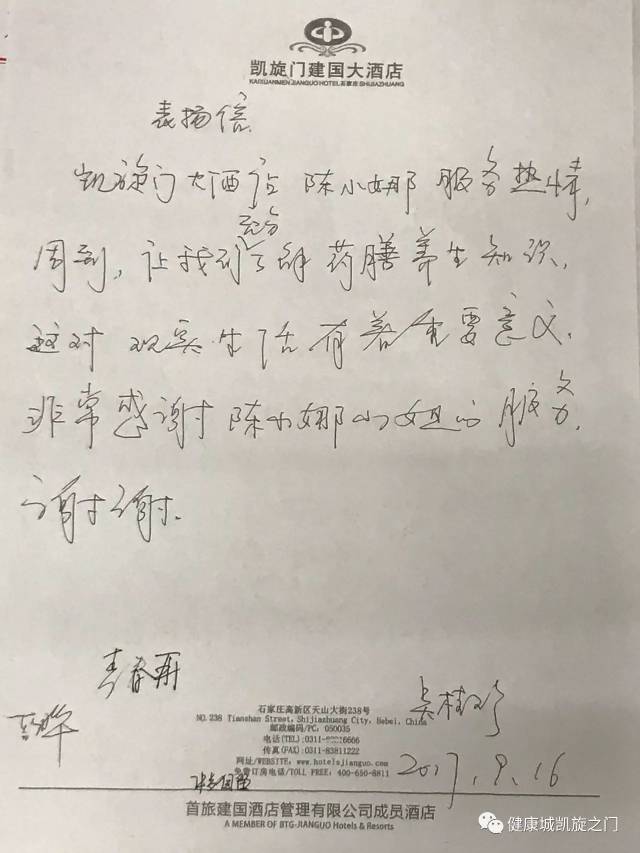 凯旋门建国大酒店
KAIXUANMEN JIANGUO HOTEL 石家庄 SHIJIAZHUANG
表扬信
凯旋门大酒店 陈小娜 服务热情,
充分
周到, 让我们了解药膳养生知识,
这对现实生活有着重要意义.
非常感谢陈小娜小姐的服务,
谢谢.
青春再
吴桂珍
石家庄高新区天山大街238号
NO.238 Tianshan Street, Shijiazhuang City, Hebei, China
邮政编码/PC: 050035
电话(TEL):0311- 6666
传真(FAX):0311-83811222
网址/WEBSITE: www.hotelsjianguo.com
免费订房电话/TOLL FREE: 400-650-8811
2017.9.16
首旅建国酒店管理有限公司成员酒店
A MEMBER OF BTG-JIANGUO Hotels & Resorts
健康城凯旋之门